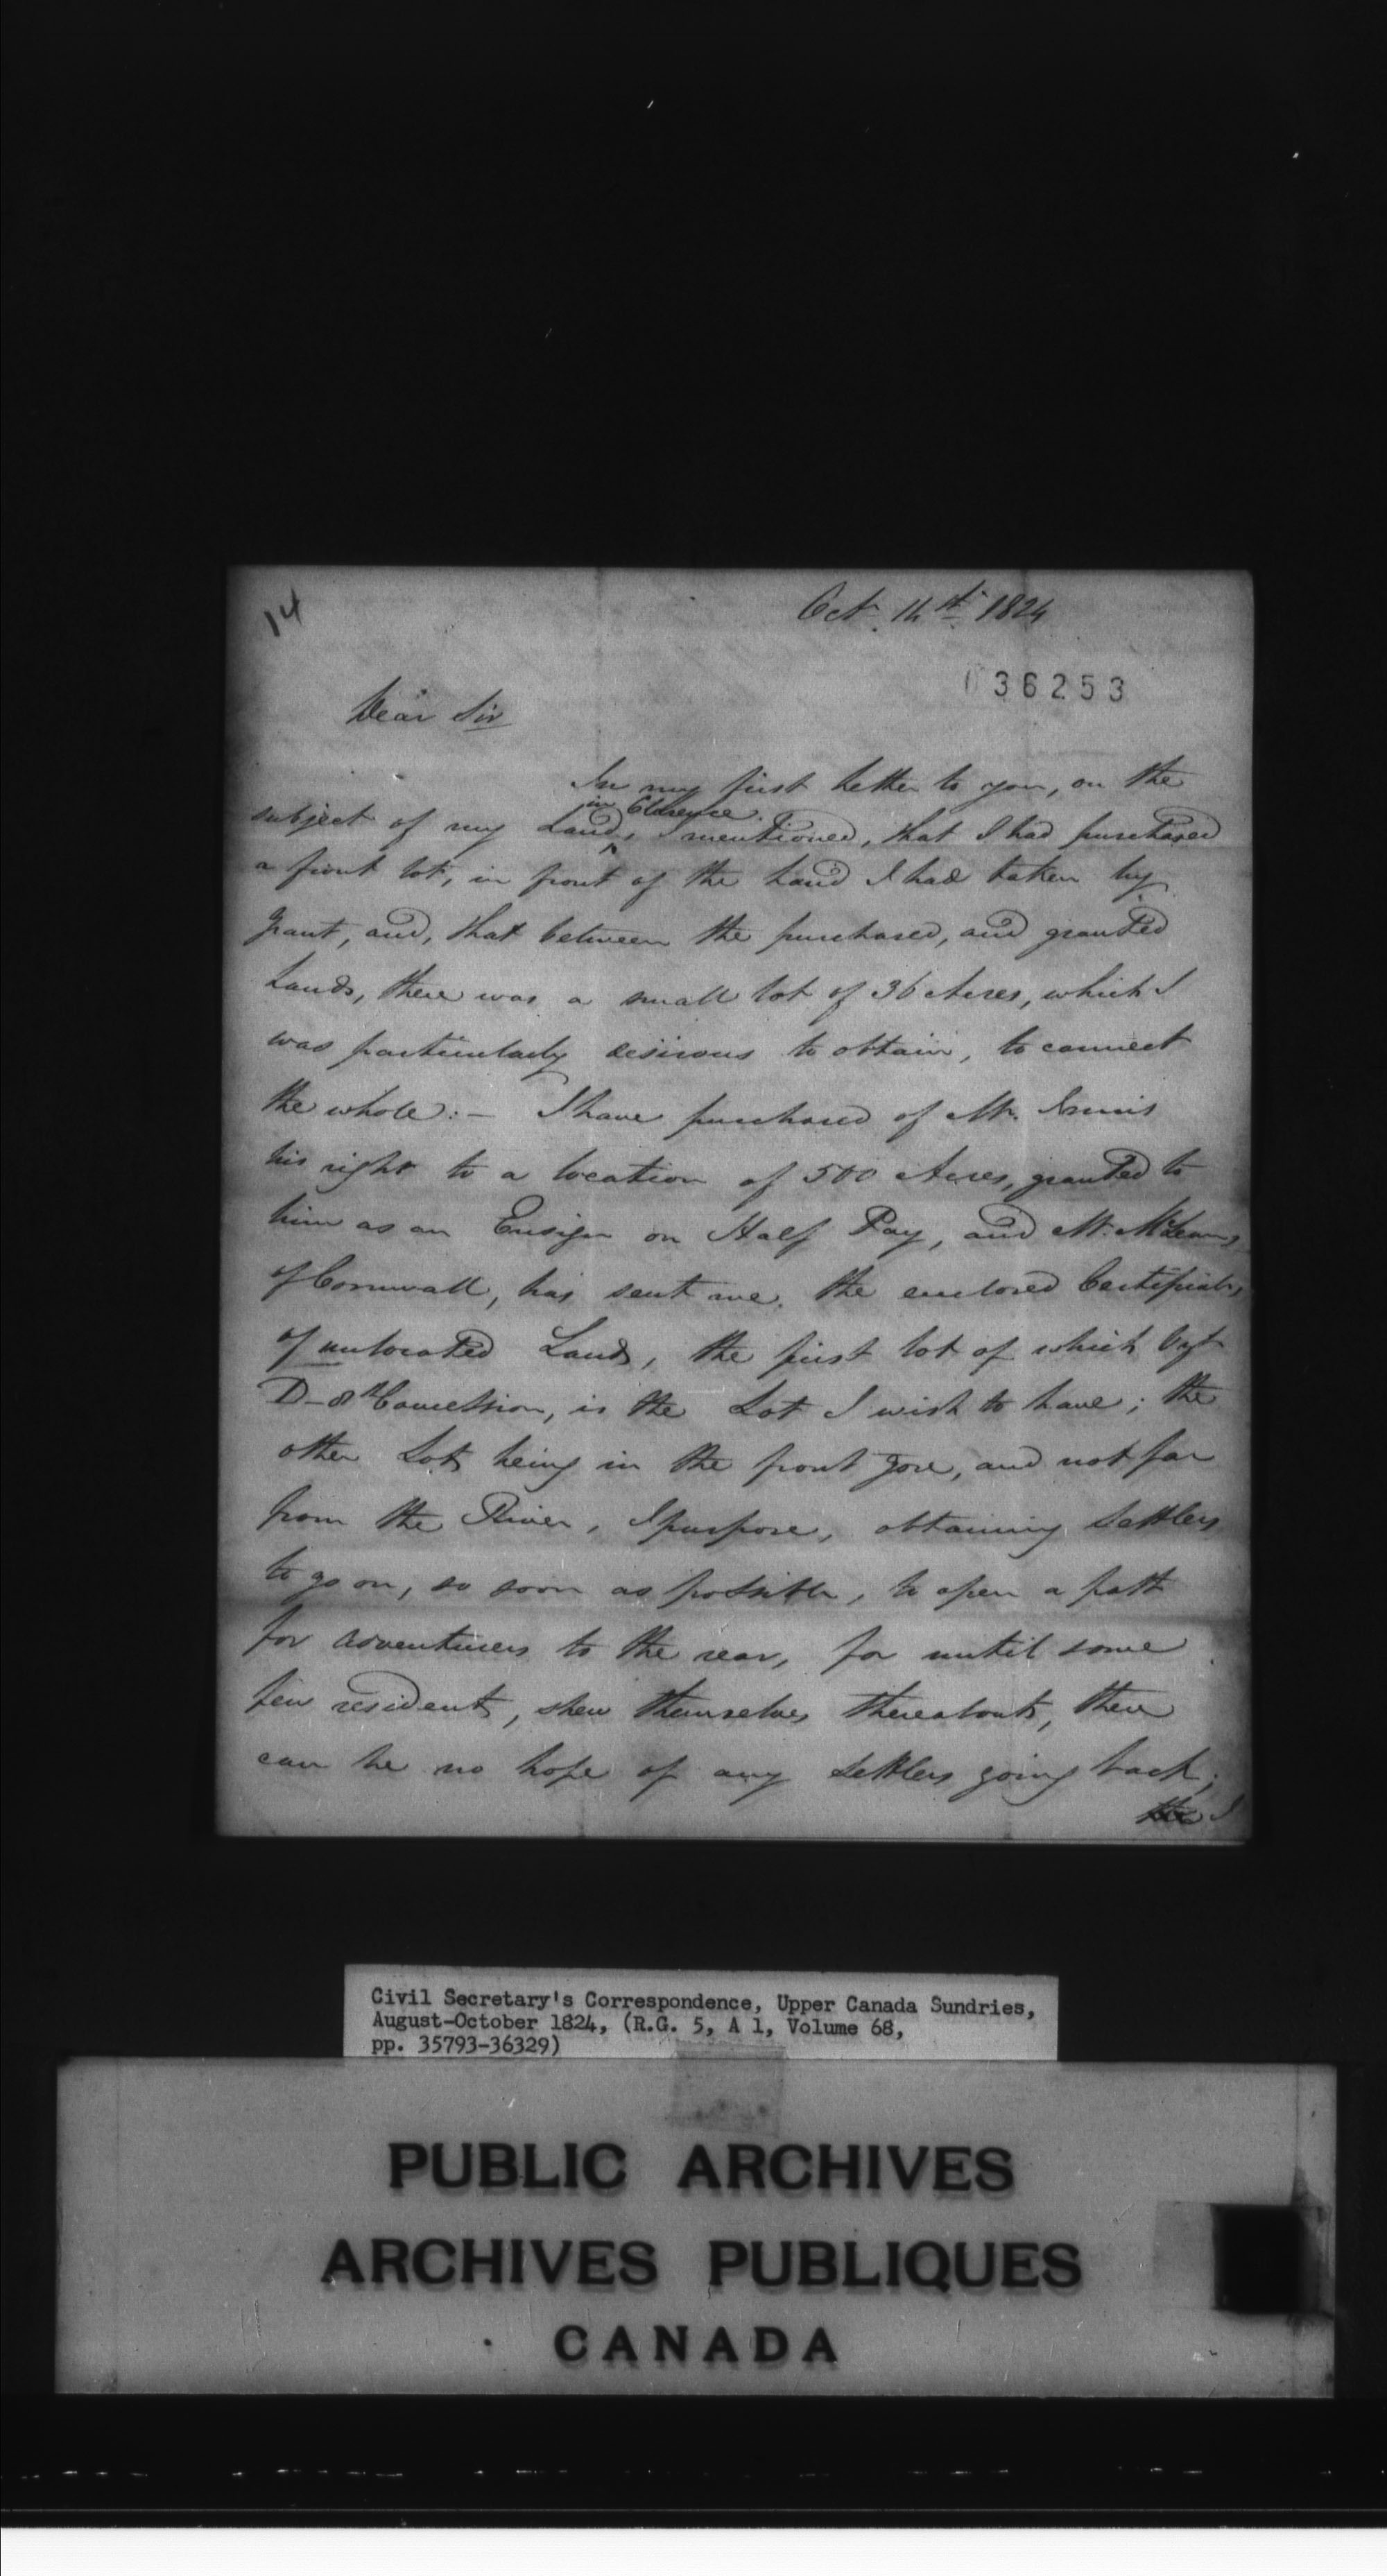 14
Oct. 14th 1824
036253
Dear Sir
In my first letter to you, on the
in Clarence
subject of my Land, I mentioned, that I had purchased
a front lot, in front of the Land I had taken by
Grant, and, that between the purchased, and granted
Lands, there was a small lot of 36 Acres, which I
was particularly desirous to obtain, to connect
the whole:- I have purchased of Mr.
his right to a location of 500 Acres, granted to
him as an Ensign on Half Pay, and Mr. McLean,
of Cornwall, has sent me, the enclosed Certificate,
of unlocated Lands, the first lot of which
D- 8th Concession, is the Lot I wish to have; the
other Lots being in the front gore, and not far
from the River, I purpose, obtaining Settlers
to go on, so soon as possible, to open a path
for adventurers to the rear, for until some
few residents, shew themselves thereabouts, there
can be no hope of any Settlers going back;
the I
Civil Secretary's Correspondence, Upper Canada Sundries,
August-October 1824, (R.G. 5, A 1, Volume 68,
pp. 35793-36329)
PUBLIC ARCHIVES
ARCHIVES PUBLIQUES
CANADA